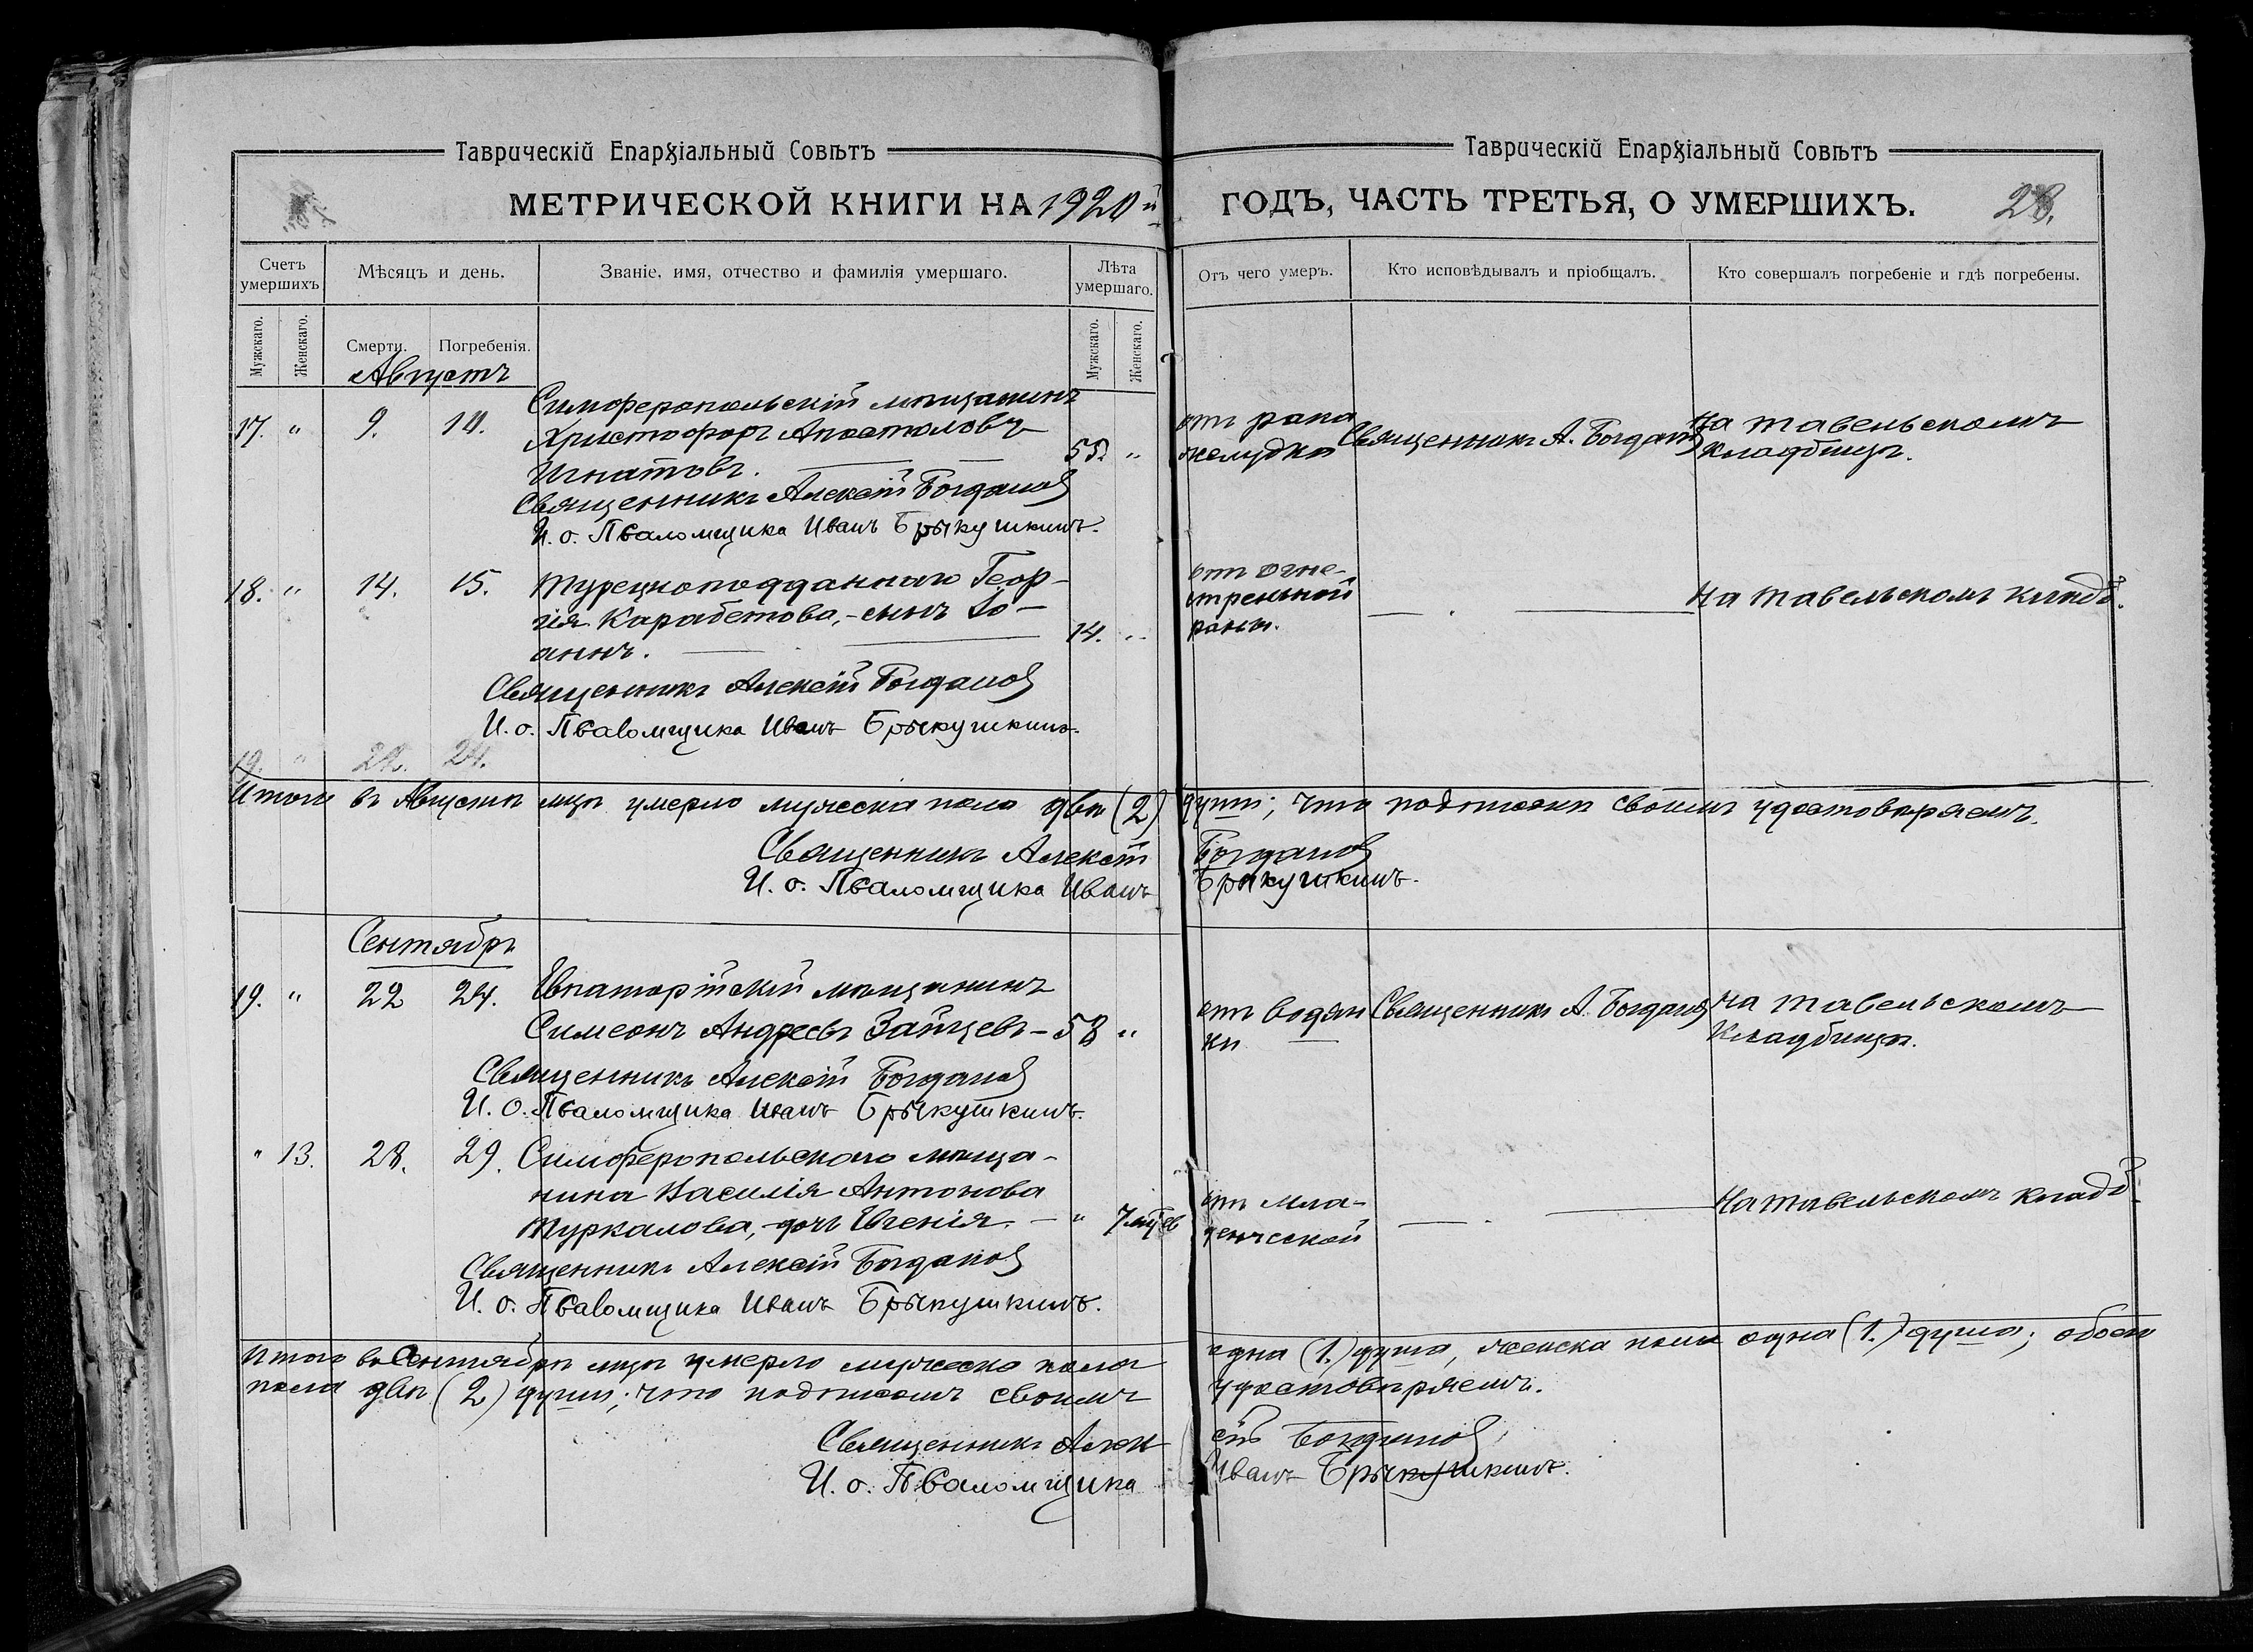 Таврическій Епархіальный Совѣтъ
МЕТРИЧЕСКОЙ КНИГИ НА 1920й
Счетъ умершихъ
Мѣсяцъ и день.
Званіе, имя, отчество и фамилія умершаго.
Лѣта умершаго.
Мужскаго.
Женскаго.
Смерти.
Погребенія.
Мужскаго.
Женскаго.
Августъ
Симферопольскій мѣщанинъ
17. " 9. 10. Христофоръ Апостоловъ
Игнатовъ. — — 55. "
Священникъ Алексій Богданов
И. о. Псаломщика Иванъ Брыкушкинъ.
18. " 14. 15. Турецкоподданнаго Геор-
гія Карабетова,- сынъ Іо-
аннъ. — — 14. "
Священникъ Алексій Богданов
И. о. Псаломщика Иванъ Брыкушкинъ.
19. " 22. 24.
Итого въ Августѣ мцѣ умерло мужеска пола двѣ (2)
Священникъ Алексій
И. о. Псаломщика Иванъ
Сентябрь
19. " 22 24. Евпаторійскій мѣщанинъ
Симеонъ Андреевъ Зайцевъ – 58 "
Священникъ Алексій Богданов
И. О. Псаломщика Иванъ Брыкушкинъ.
" 13. 28. 29. Симферопольскаго мѣща-
нина Василія Антонова
Туркалова,- дочь Евгенія. — " 7 мцев
Священникъ Алексій Богданов
И. о. Псаломщика Иванъ Брыкушкинъ.
Итого въ Сентябрѣ мцѣ умерло мужеска пола
пола двѣ (2) души; что подписомъ своимъ
Священникъ Алек
И. о. Псаломщика
Таврическій Епархіальный Совѣтъ
ГОДЪ, ЧАСТЬ ТРЕТЬЯ, О УМЕРШИХЪ. 28.
Отъ чего умеръ.
Кто исповѣдывалъ и пріобщалъ.
Кто совершалъ погребеніе и гдѣ погребены.
отъ рака Священникъ А. Богданов На Тавельскомъ
желудка кладбищѣ.
отъ огне-
стрельной — . — На Тавельскомъ кладб.
раны.
души; что подписями своими удостовѣряемъ.
Богданов
Брыкушкинъ.
отъ водян Священникъ А. Богданов На Тавельскомъ
ки кладбищѣ.
отъ мла- На Тавельскомъ кладб.
денческой — . —
одна (1.) душа, женска пола одна (1.) душа; обоего
удостовѣряемъ.
сій Богданов
Иванъ Брыкушкинъ.